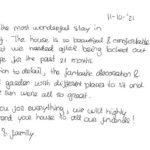 11-10-'21
the most wonderful stay in
. The house is so beautiful & comfortable
we needed after being locked out
for the past 21 months
to detail, the fantastic decoration &
garden with different places to sit and
were all so great.
you for everything, we will highly
your house to all our friends!
& family